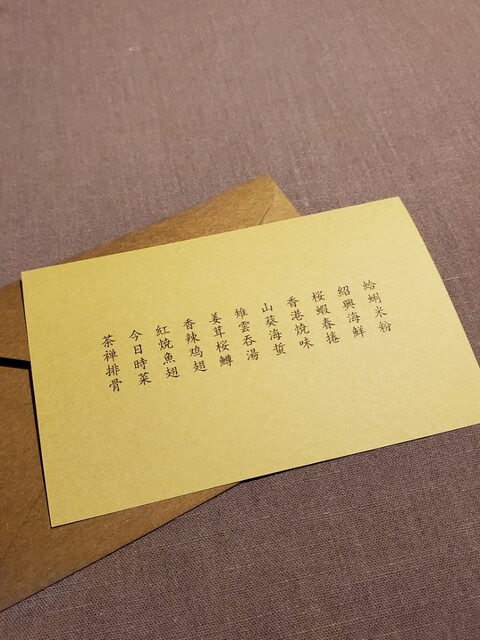 蛤蜊米粉
紹興海鮮
桜蝦春捲
香港焼味
山葵海蜇
雉雲吞湯
姜茸桜鱒
香辣鸡翅
紅焼魚翅
今日時菜
茶禅排骨